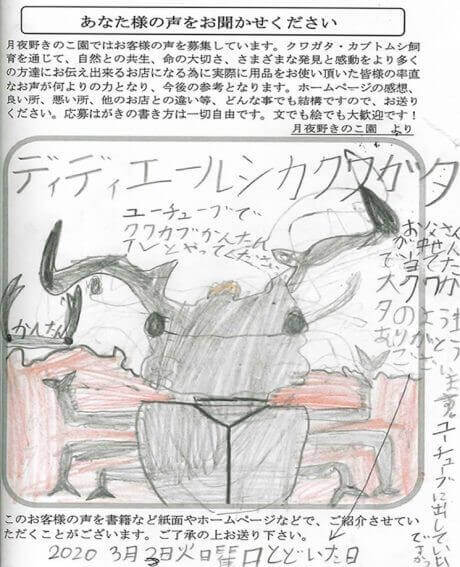 あなた様の声をお聞かせください
月夜野きのこ園ではお客様の声を募集しています。クワガタ・カブトムシ飼
育を通じて、自然との共生、命の大切さ、さまざまな発見と感動をより多く
の方達にお伝え出来るお店になる為に実際に用品をお使い頂いた皆様の率直
なお声が何よりの力となり、今後の参考となります。ホームページの感想、
良い所、悪い所、他のお店との違い等、どんな事でも結構ですので、お送り
ください。応募はがきの書き方は一切自由です。文でも絵でも大歓迎です!
月夜野きのこ園 より
ディディエールシカクワガタ
ユーチューブで
クワカブかんたん
TVとやってください
かんたん!
お父さん
クワガタ
ありがとう
ユーチューブに出して
このお客様の声を書籍など紙面やホームページなどで、ご紹介させてい
ただくことがございます。ご了承の上お送り下さい。
2020 3月3日火曜日とどいた日